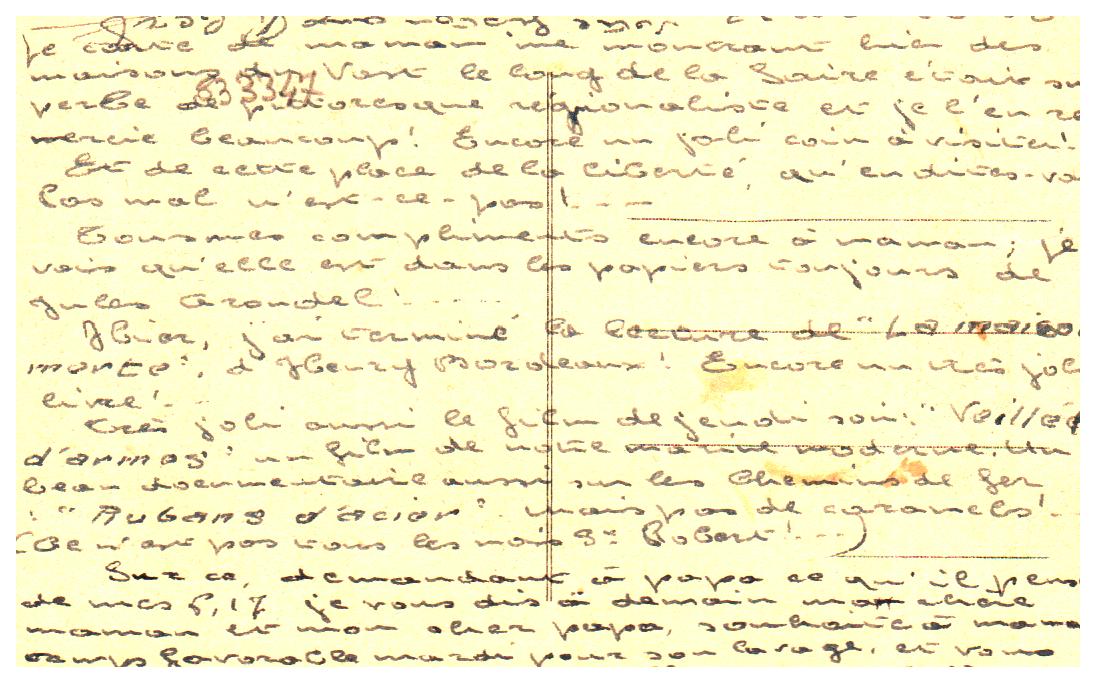 je carte de maman me montrant bien des
maisons du Vast le long de la Saire était su
833347
perbe de pittoresque régionaliste et je l'en re
mercie beaucoup! Encore un joli coin à visiter!
Et de cette place de la liberté, qu'en dites-vo
Pas mal n'est-ce-pas! ---
Tous mes compliments encore à maman; je
vois qu'elle est dans les papiers toujours de
Jules !.....
Hier, j'ai terminé la lecture de "La maiso
morte", d'Henry Bordeaux! Encore un très joli
livre!..
Très joli aussi le film de jeudi soir: "Veillée
d'armes" un film de notre marine moderne. Un
beau documentaire aussi sur les chemins de fer
: "Rubans d'acier". mais pas de caramels!..
(Ce n'est pas tous les mois St Robert! ...)
Sur ce, demandant à papa ce qu'il pens
de mes 6,17 je vous dis à demain ma chère
maman et mon cher papa, souhaite à mama
temps favorable mardi pour son lavage, et vous